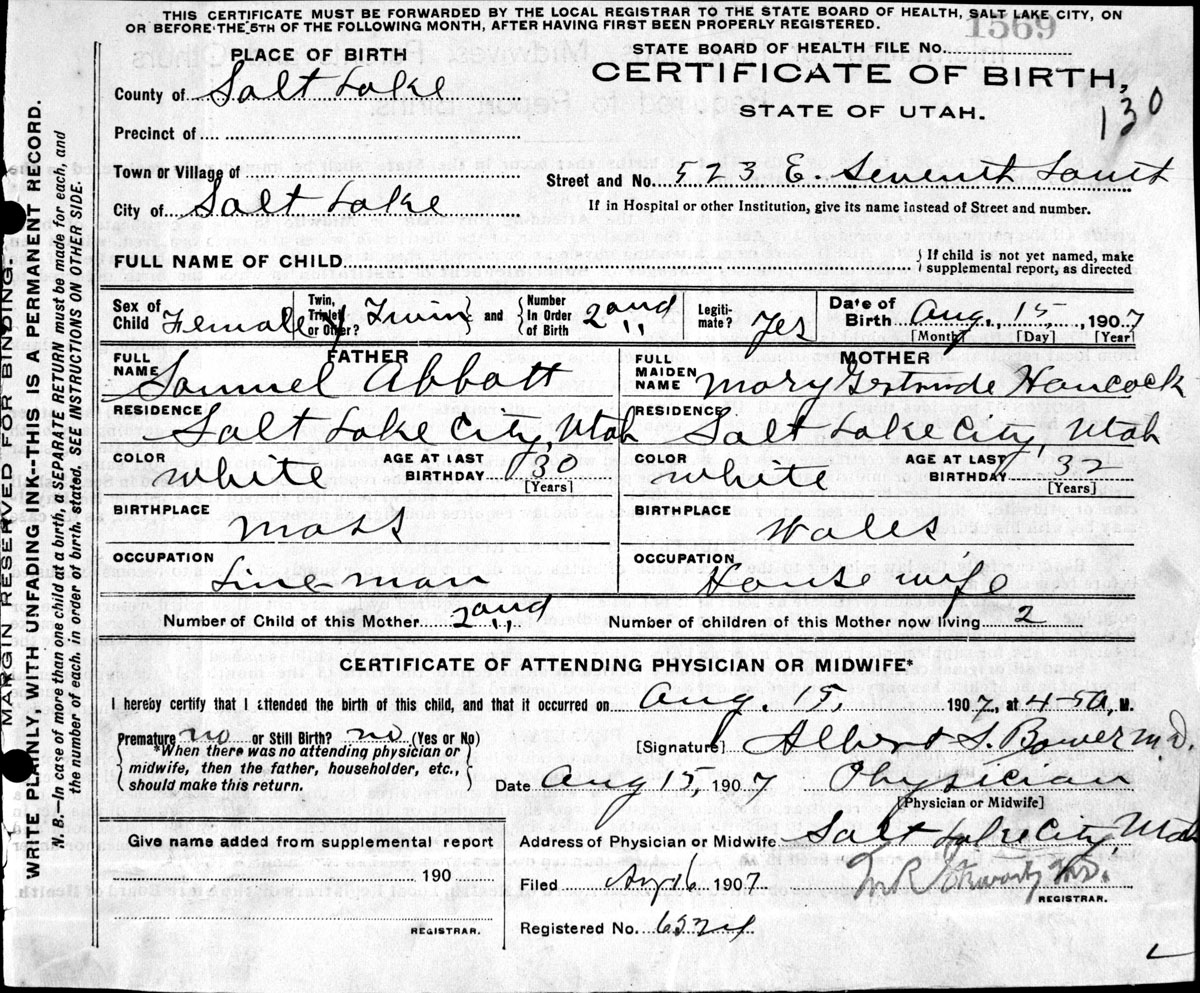 THIS CERTIFICATE MUST BE FORWARDED BY THE LOCAL REGISTRAR TO THE STATE BOARD OF HEALTH, SALT LAKE CITY, ON
OR BEFORE THE 5TH OF THE FOLLOWING MONTH, AFTER HAVING FIRST BEEN PROPERLY REGISTERED.
MARGIN RESERVED FOR BINDING.
WRITE PLAINLY, WITH UNFADING INK--THIS IS A PERMANENT RECORD.
N. B.—In case of more than one child at a birth, a SEPARATE RETURN must be made for each, and
the number of each, in order of birth, stated. SEE INSTRUCTIONS ON OTHER SIDE.
PLACE OF BIRTH
County of Salt Lake
Precinct of
Town or Village of
City of Salt Lake
STATE BOARD OF HEALTH FILE No. 1569
CERTIFICATE OF BIRTH,
STATE OF UTAH.
130
Street and No. 523 E. Seventh South
If in Hospital or other Institution, give its name instead of Street and number.
FULL NAME OF CHILD
If child is not yet named, make
supplemental report, as directed
Sex of Child Female
Twin, Triplet, or Other? Twin
and
Number In Order of Birth 2nd
Legiti-mate? Yes
Date of Birth Aug. 15, 1907
[Month] [Day] [Year]
FATHER
FULL NAME Samuel Abbott
RESIDENCE Salt Lake City, Utah
COLOR White AGE AT LAST BIRTHDAY 30 [Years]
BIRTHPLACE Mass
OCCUPATION Line man
MOTHER
FULL MAIDEN NAME Mary Gertrude Hancock
RESIDENCE Salt Lake City Utah
COLOR White AGE AT LAST BIRTHDAY 32 [Years]
BIRTHPLACE Wales
OCCUPATION House wife
Number of Child of this Mother 2nd
Number of children of this Mother now living 2
CERTIFICATE OF ATTENDING PHYSICIAN OR MIDWIFE*
I hereby certify that I attended the birth of this child, and that it occurred on Aug. 15, 1907, at 4-5 a, M.
Premature no or Still Birth? no (Yes or No)
*When there was no attending physician or
midwife, then the father, householder, etc.,
should make this return.
[Signature] Albert S. Bower M.D.
Date Aug 15, 1907 Physician
[Physician or Midwife]
Give name added from supplemental report
190
REGISTRAR.
Address of Physician or Midwife Salt Lake City, Utah
Filed 16 1907
REGISTRAR.
Registered No.